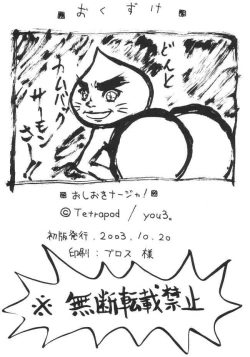 おくずけ
どんと
カムバック
サーモン
さー!!
おしおきナージャ!
© Tetrapod / you3。
初版発行.2003.10.20
印刷:プロス 様
※ 無断転載禁止